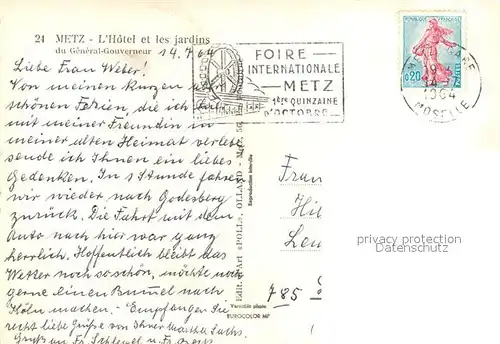 21 METZ - L'Hôtel et les jardins
du Général-Gouverneur
14.7.64
Liebe Frau Weber!
Von meinen kurzen aber
schönen Ferien, die ich hier
mit meiner Freundin in
meiner alten Heimat verlebe
sende ich Ihnen ein liebes
Gedenken. In 1 Stunde fahren
wir wieder nach Godesberg
zurück. Die Fahrt mit dem
Auto nach hier war ganz
herrlich. Hoffentlich bleibt das
Wetter noch so schön, möchte noch
gerne einen Bummel nach
Köln machen. - Empfangen Sie
recht liebe Grüße von Ihrer Martha Sachs.
Gruß an Fr.
FOIRE
INTERNATIONALE
- METZ -
1ère QUINZAINE
D'OCTOBRE
RÉPUBLIQUE FRANÇAISE
0,20
POSTES
METZ GARE
19
14-7
1964
MOSELLE
Edit. d'Art «POLL», OLLAND - Metz
Reproduction interdite
Véritable photo
EUROCOLOR MP
Frau
Hil
Leu
785
privacy protection
Datenschutz